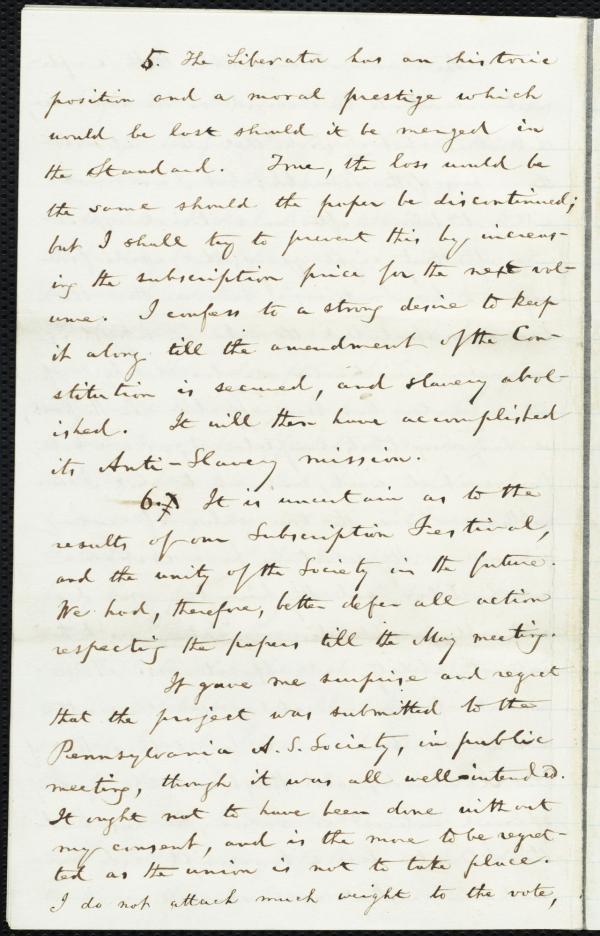 5. The Liberator has an historic
position and a moral prestige which
would be lost should it be merged in
the Standard. True, the loss would be
the same should the paper be discontinued;
but I shall try to prevent this by increas-
ing the subscription price for the next vol-
ume. I confess to a strong desire to keep
it along till the amendment of the Con-
stitution is secured, and slavery abol-
ished. It will then have accomplished
its Anti-Slavery mission.
6. It is uncertain as to the
results of our Subscription Festival,
and the unity of the Society in the future.
We had, therefore, better defer all action
respecting the papers till the May meeting.
It gave me surprise and regret
that the project was submitted to the
Pennsylvania A. S. Society, in public
meeting, though it was all well-intended.
It ought not to have been done without
my consent, and is the more to be regret-
ted as the union is not to take place.
I do not attach much weight to the vote,